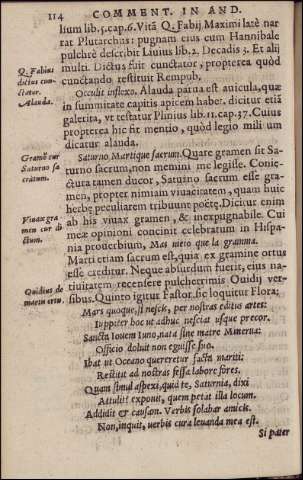 114 COMMENT. IN AND.
lium lib.5.cap.6. Vitā Q. Fabij Maximi latè nar
rat Plutarchus: pugnam eius cum Hannibale
pulchrè describit Luuius lib.2. Decadis 3. Et alij
Q. Fabius
dictus cun-
ctator.
multi. Dictus fuit cunctator, propterea quòd
cunctando restituit Rempub,
Alauda.
Occulit inflexo. Alauda parua est auicula, quæ
in summitate capitis apicem habet. dicitur etiā
galerita, vt testatur Plinius lib.11.cap.37. Cuius
propterea hic fit mentio, quòd legio mili um
dicatur alauda.
Gramē cur
Saturno sa
cratum.
Saturno, Martique sacrum. Quare gramen sit Sa-
turno sacrum, non memini me legisse. Coniec-
ctura tamen ducor, Saturno sacrum esse gra-
men, propter nimiam viuacitatem, quam huic
herbę peculiarem tribuunt poëtę. Dicitur enim
Viuax gra
men cur di
ctum.
ab his viuax gramen, & inexpugnabile. Cui
meæ opinioni concinit celebratum in Hispa-
nia prouerbium, Mas viejo que la gramma.
Marti etiam sacrum est, quia ex gramine ortus
esse creditur. Neque absurdum fuerit, eius na-
Ouidius de
martis ortu.
tiuitatem recensere pulcherrimis Ouidij ver-
sibus. Quinto igitur Fastor. sic loquitur Flora:
Mars quoque, si nescis, per nostras editus artes:
Iuppiter hoc vt adhuc nesciat vsque precor.
Sancta Iouem Iuno, nata sine matre Minerua:
Officio doluit non eguisse suo.
Ibat vt Oceano quereretur facta mariti:
Restitit ad nostras fessa labore fores.
Quam simul aspexi, quid te, Saturnia, dixi
Attulit? exponit, quem petat illa locum.
Addidit & causam. Verbis solabar amicis.
Non, inquit, verbis cura leuanda mea est.
Si pater